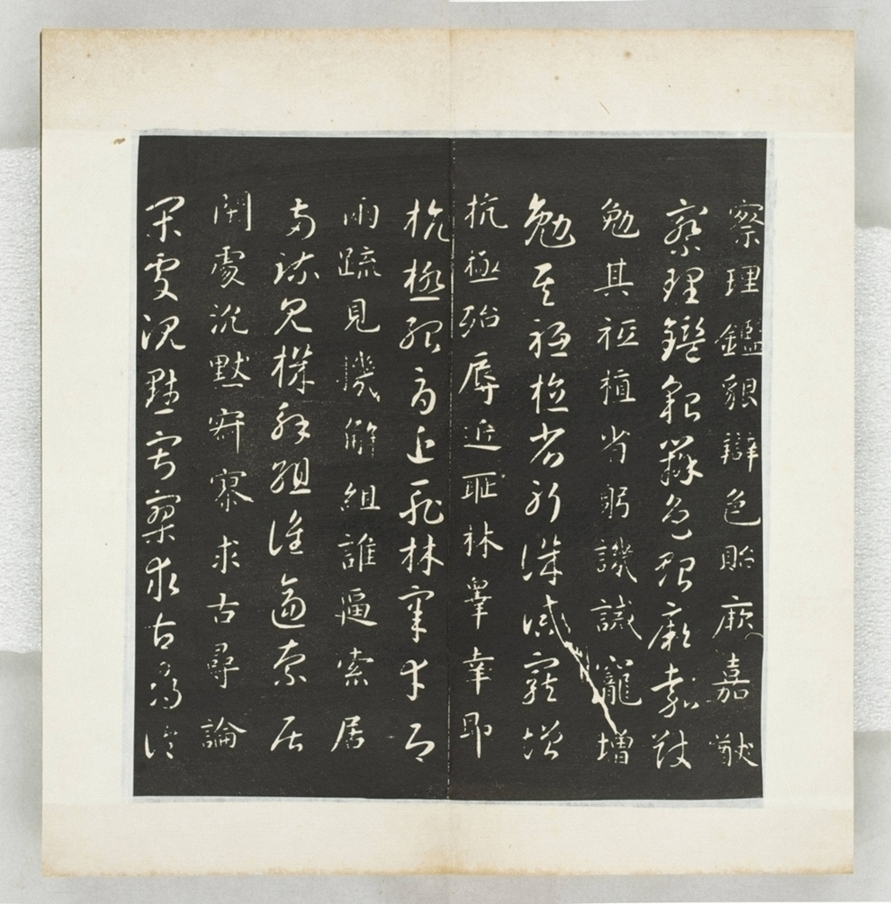 察理鑑貌辯色貽厥嘉猷
察理鑑貌辯色貽厥嘉猷
勉其祗植省躬譏誡寵增
勉其祗植省躬譏誡寵增
抗極殆辱近耻林皋幸即
抗極殆辱近耻林皋幸即
兩疏見機解組誰逼索居
兩疏見機解組誰逼索居
閑處沉默寂寥求古尋論
閑處沉默寂寥求古尋論